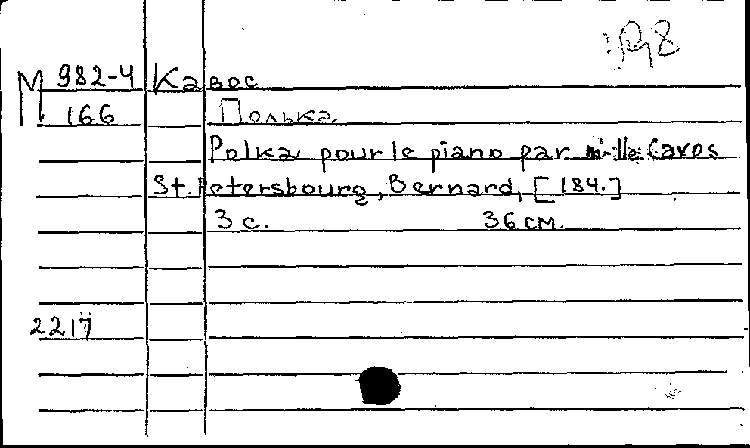 М 982-4 Кавос
166 Полька.
Polka pour le piano par m-lle Cavos
St. Petersbourg, Bernard, [184.]
3 с. 36 см.
2217